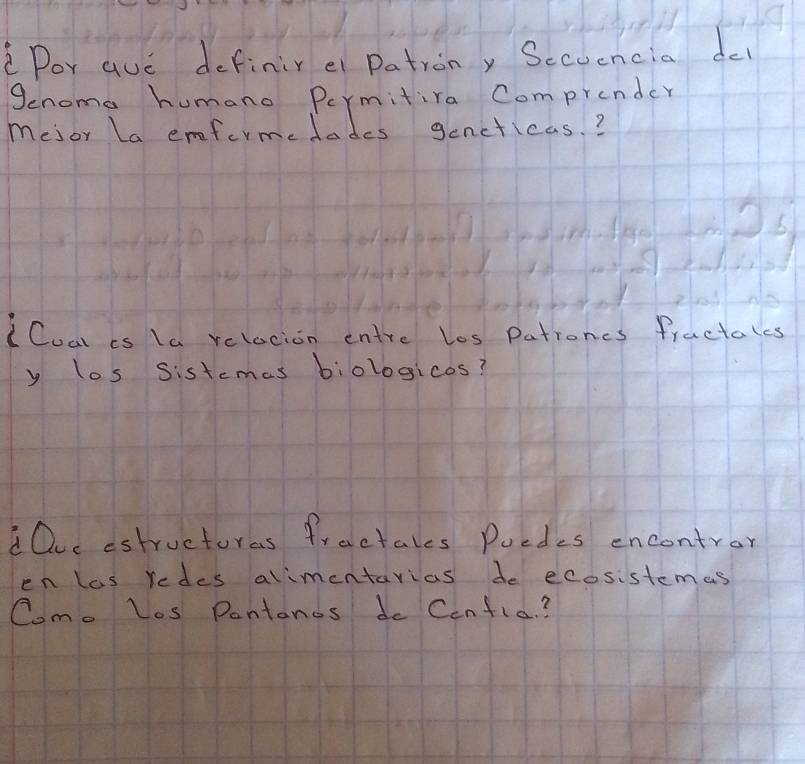 ¿Por qué definir el Patrón y Secuencia del
genoma humano Permitira Comprender
mejor la emfermedades geneticas.?
¿Cual es la relación entre los Patrones fractales
y los Sistemas biologicos?
¿Que estructuras fractales Puedes encontrar
en las redes alimentarias de ecosistemas
Como los Pantanos de Centla.?